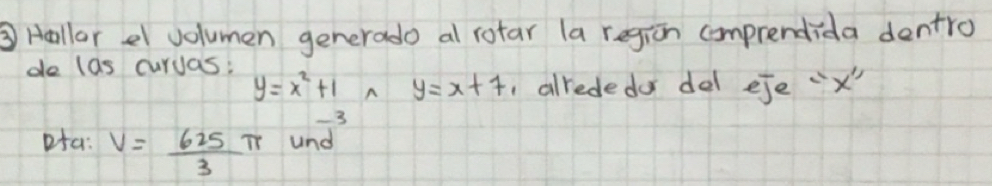 ③ Hallar el volumen generado al rotar la región comprendida dentro
de las curvas:
y=x²+1 ∧ y=x+7, alrededor del eje "x"
Rta: V= 625/3 π und⁻³